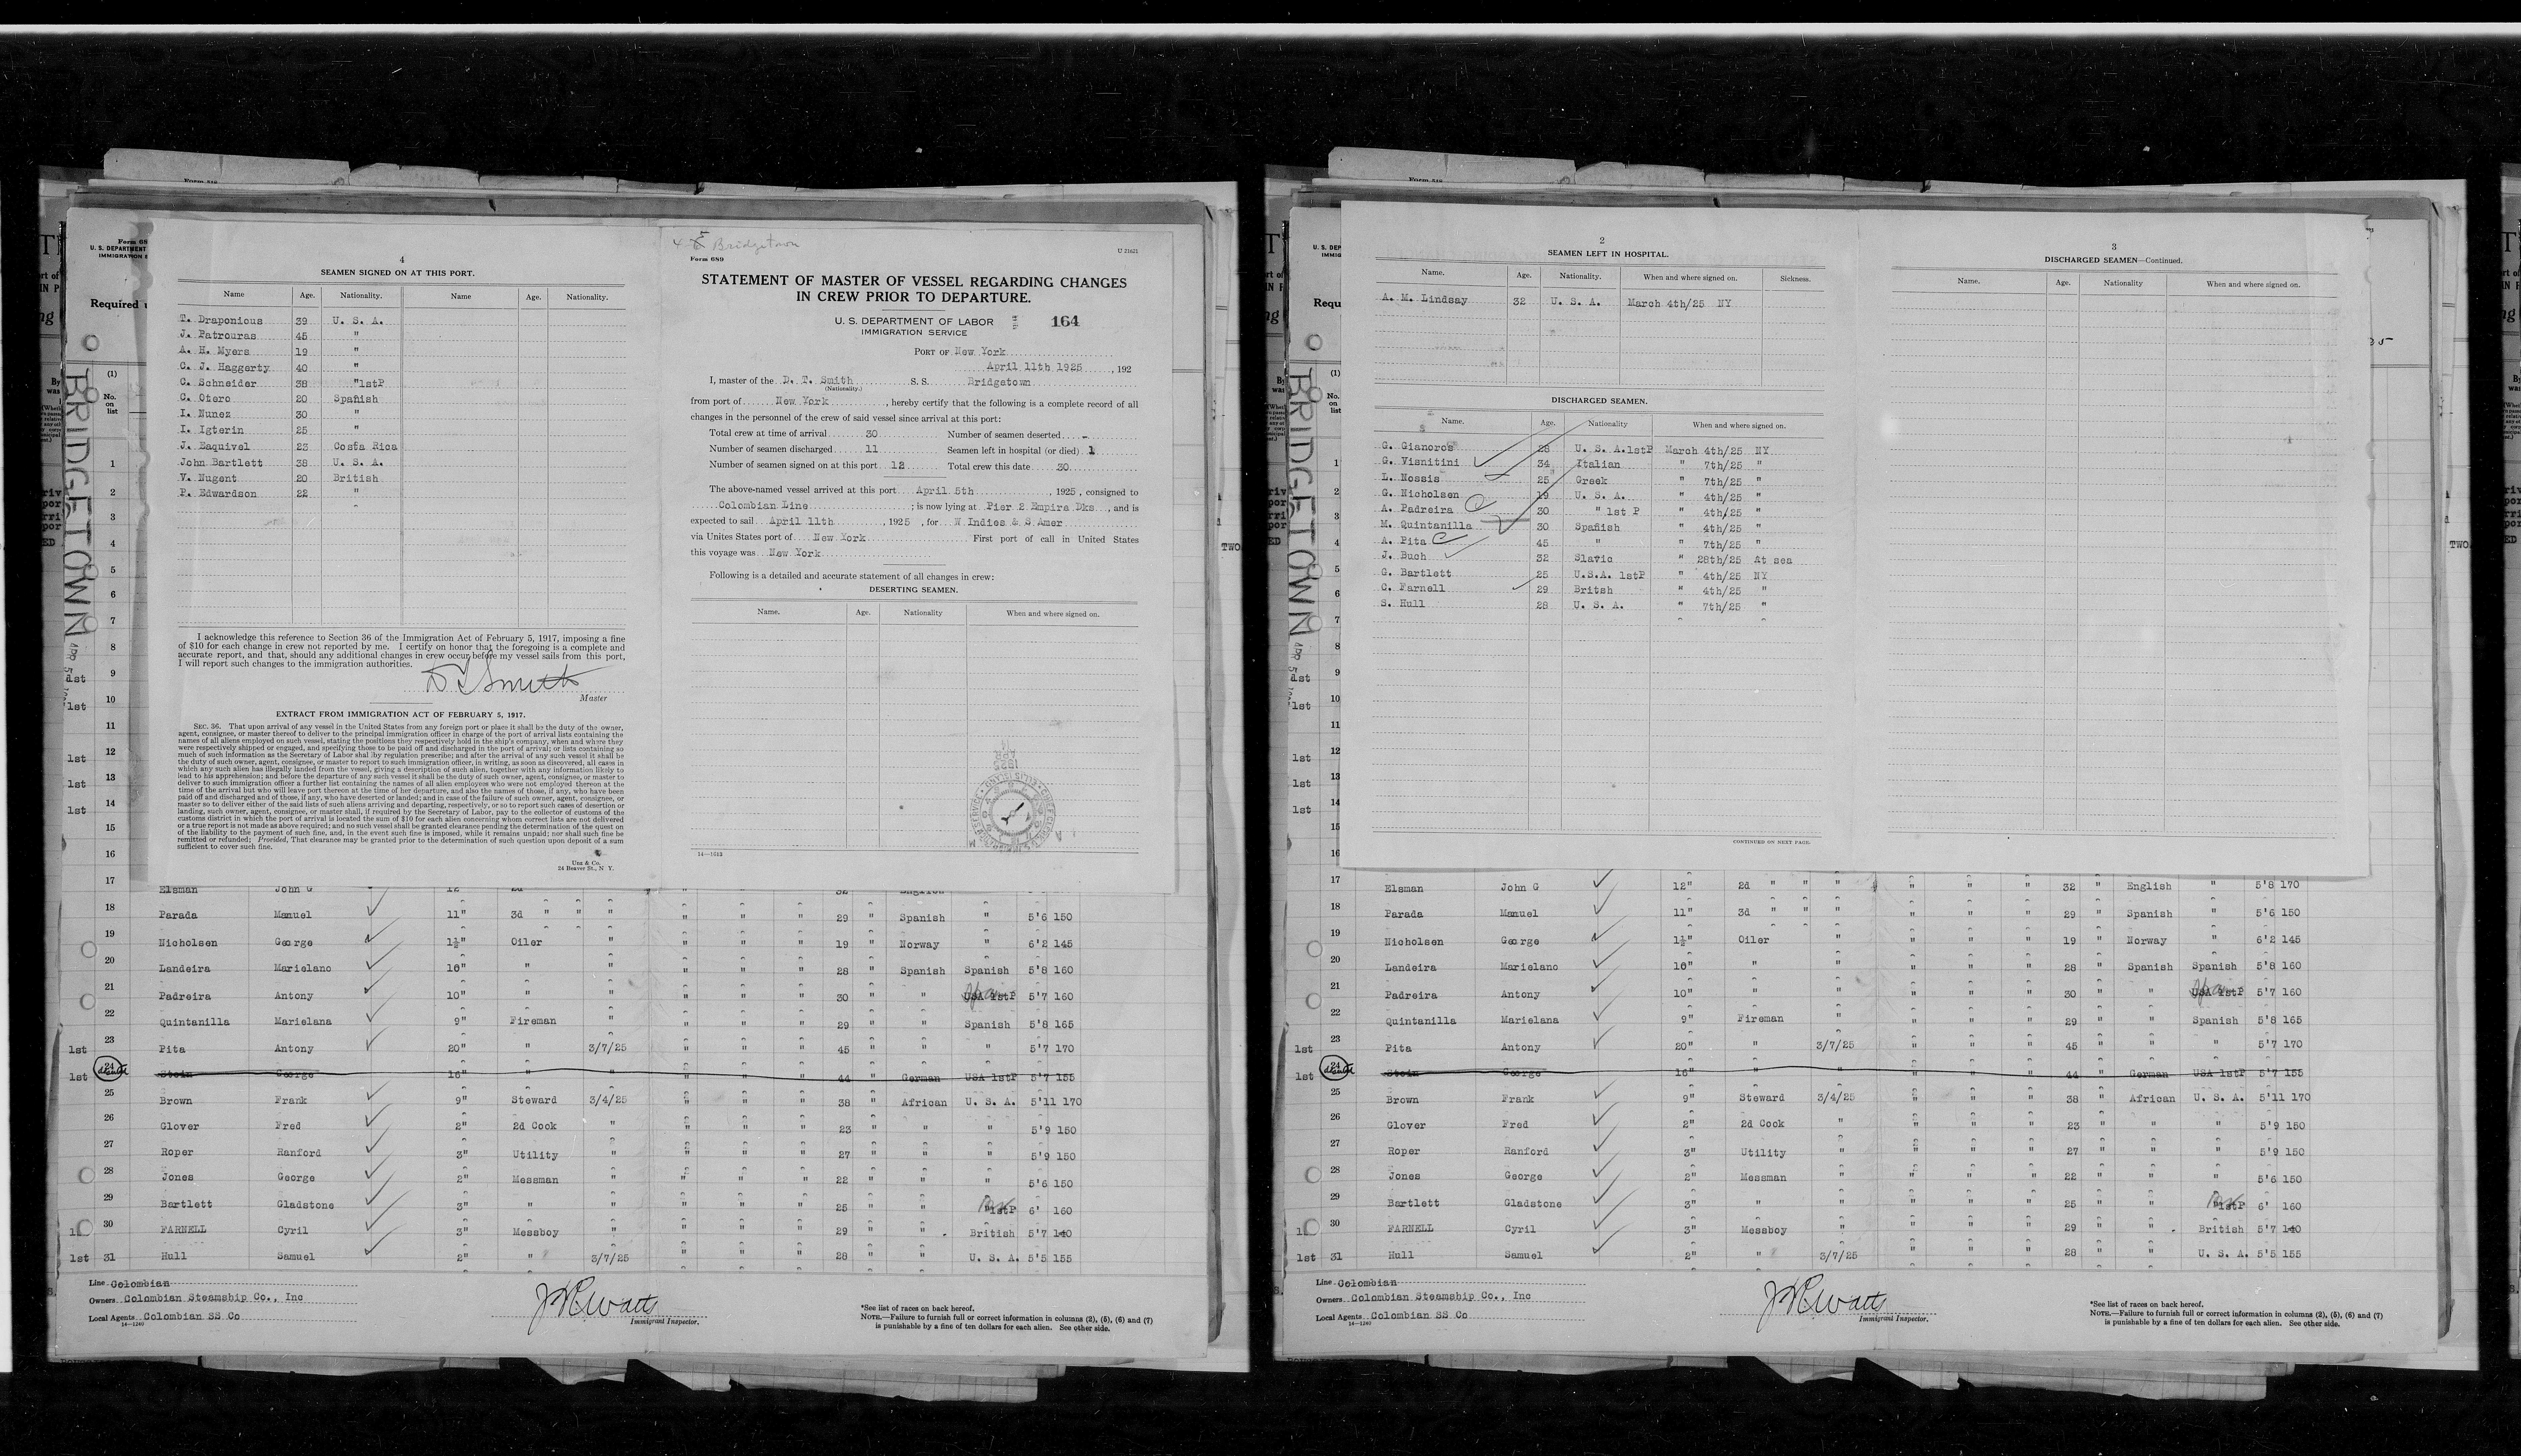 4
SEAMEN SIGNED ON AT THIS PORT.
Name Age. Nationality. Name Age. Nationality.
T. Draponious 39 U. S. A.
J. Patrouras 45 "
A. H. Myers 19 "
C. J. Haggerty 40 "
C. Schneider 38 "1stP
C. Otero 20 Spanish
I. Nunez 30 "
I. Igterin 25 "
J. Esquivel 23 Costa Rica
John Bartlett 38 U. S. A.
V. Nugent 20 British
P. Edwardson 22 "
I acknowledge this reference to Section 36 of the Immigration Act of February 5, 1917, imposing a fine
of $10 for each change in crew not reported by me. I certify on honor that the foregoing is a complete and
accurate report, and that, should any additional changes in crew occur before my vessel sails from this port,
I will report such changes to the immigration authorities.
D T Smith
Master
EXTRACT FROM IMMIGRATION ACT OF FEBRUARY 5, 1917.
SEC. 36. That upon arrival of any vessel in the United States from any foreign port or place it shall be the duty of the owner,
agent, consignee, or master thereof to deliver to the principal immigration officer in charge of the port of arrival lists containing the
names of all aliens employed on such vessel, stating the positions they respectively hold in the ship's company, when and where they
were respectively shipped or engaged, and specifying those to be paid off and discharged in the port of arrival; or lists containing so
much of such information as the Secretary of Labor shall by regulation prescribe; and after the arrival of any such vessel it shall be
the duty of such owner, agent, consignee, or master to report to such immigration officer, in writing, as soon as discovered, all cases in
which any such alien has illegally landed from the vessel, giving a description of such alien, together with any information likely to
lead to his apprehension; and before the departure of any such vessel it shall be the duty of such owner, agent, consignee, or master to
deliver to such immigration officer a further list containing the names of all alien employees who were not employed thereon at the
time of the arrival but who will leave port thereon at the time of her departure, and also the names of those, if any, who have been
paid off and discharged and of those, if any, who have deserted or landed; and in case of the failure of such owner, agent, consignee, or
master so to deliver either of the said lists of such aliens arriving and departing, respectively, or so to report such cases of desertion or
landing, such owner, agent, consignee, or master shall, if required by the Secretary of Labor, pay to the collector of customs of the
customs district in which the port of arrival is located the sum of $10 for each alien concerning whom correct lists are not delivered
or a true report is not made as above required; and no such vessel shall be granted clearance pending the determination of the question
of the liability to the payment of such fine, and, in the event such fine is imposed, while it remains unpaid; nor shall such fine be
remitted or refunded; Provided, That clearance may be granted prior to the determination of such question upon deposit of a sum
sufficient to cover such fine.
Unz & Co.
24 Beaver St., N. Y.
Bridgetown
U 21621
Form 689
STATEMENT OF MASTER OF VESSEL REGARDING CHANGES
IN CREW PRIOR TO DEPARTURE.
U. S. DEPARTMENT OF LABOR
IMMIGRATION SERVICE
164
PORT OF New York
April 11th 1925, 192
I, master of the D. T. Smith S. S. Bridgetown
(Nationality.)
from port of New York, hereby certify that the following is a complete record of all
changes in the personnel of the crew of said vessel since arrival at this port:
Total crew at time of arrival 30 Number of seamen deserted -
Number of seamen discharged 11 Seamen left in hospital (or died) 1
Number of seamen signed on at this port 12 Total crew this date 30
The above-named vessel arrived at this port April 5th, 1925, consigned to
Colombian Line; is now lying at Pier 2 Empire Dks, and is
expected to sail April 11th, 1925, for W Indies & S.Amer
via Unites States port of New York. First port of call in United States
this voyage was New York
Following is a detailed and accurate statement of all changes in crew:
DESERTING SEAMEN.
Name. Age. Nationality When and where signed on.
14-1683
BRIDGETOWN
17 Elsman John G 12" 2d " " " " " " 32 " English
18 Parada Manuel 11" 3d " " " " " " 29 " Spanish " 5'6 150
19 Nicholsen George 1½" Oiler " " " " 19 " Norway " 6'2 145
20 Landeira Marielano 16" " " " " " 28 " Spanish Spanish 5'8 160
21 Padreira Antony 10" " " " " " 30 " " USA 1stP 5'7 160
22 Quintanilla Marielana 9" Fireman " " " " 29 " " Spanish 5'8 165
1st 23 Pita Antony 20" " 3/7/25 " " " 45 " " " 5'7 170
1st 24 Stein George 16" " " " " " 44 " German USA 1stP 5'7 155
25 Brown Frank 9" Steward 3/4/25 " " " 38 " African U. S. A. 5'11 170
26 Glover Fred 2" 2d Cook " " " " 23 " " " 5'9 150
27 Roper Ranford 3" Utility " " " " 27 " " " 5'9 150
28 Jones George 2" Messman " " " " 22 " " " 5'6 150
29 Bartlett Gladstone 3" " " " " " 25 " " "1stP 6' 160
30 FARNELL Cyril 3" Messboy " " " " 29 " " British 5'7 140
1st 31 Hull Samuel 2" " 3/7/25 " " " 28 " " U. S. A. 5'5 155
Line Colombian
Owners Colombian Steamship Co., Inc
Local Agents Colombian SS Co
14-1240
Immigrant Inspector.
*See list of races on back hereof.
NOTE.—Failure to furnish full or correct information in columns (2), (5), (6) and (7)
is punishable by a fine of ten dollars for each alien. See other side.
2
SEAMEN LEFT IN HOSPITAL.
Name. Age. Nationality. When and where signed on. Sickness.
A. M. Lindsay 32 U. S. A. March 4th/25 NY
DISCHARGED SEAMEN.
Name. Age. Nationality When and where signed on.
G. Gianoros 28 U. S. A.1stP March 4th/25 NY
G. Visnitini 34 Italian " 7th/25 "
L. Nossis 25 Greek " 7th/25 "
G. Nicholsen 19 U. S. A. " 4th/25 "
A. Padreira 30 " 1st P " 4th/25 "
M. Quintanilla 30 Spanish " 4th/25 "
A. Pita 45 " " 7th/25 "
J. Buch 32 Slavic " 28th/25 At sea
G. Bartlett 25 U.S.A. 1stP " 4th/25 NY
C. Farnell 29 Britsh " 4th/25 "
S. Hull 28 U. S. A. " 7th/25 "
CONTINUED ON NEXT PAGE.
3
DISCHARGED SEAMEN—Continued.
Name. Age. Nationality When and where signed on.
BRIDGETOWN
17 Elsman John G 12" 2d " " " " " " 32 " English " 5'8 170
18 Parada Manuel 11" 3d " " " " " " 29 " Spanish " 5'6 150
19 Nicholsen George 1½" Oiler " " " " 19 " Norway " 6'2 145
20 Landeira Marielano 16" " " " " " 28 " Spanish Spanish 5'8 160
21 Padreira Antony 10" " " " " " 30 " " USA 1stP 5'7 160
22 Quintanilla Marielana 9" Fireman " " " " 29 " " Spanish 5'8 165
1st 23 Pita Antony 20" " 3/7/25 " " " 45 " " " 5'7 170
1st 24 Stein George 16" " " " " " 44 " German USA 1stP 5'7 155
25 Brown Frank 9" Steward 3/4/25 " " " 38 " African U. S. A. 5'11 170
26 Glover Fred 2" 2d Cook " " " " 23 " " " 5'9 150
27 Roper Ranford 3" Utility " " " " 27 " " " 5'9 150
28 Jones George 2" Messman " " " " 22 " " " 5'6 150
29 Bartlett Gladstone 3" " " " " " 25 " " "1stP 6' 160
30 FARNELL Cyril 3" Messboy " " " " 29 " " British 5'7 140
1st 31 Hull Samuel 2" " 3/7/25 " " " 28 " " U. S. A. 5'5 155
Line Colombian
Owners Colombian Steamship Co., Inc
Local Agents Colombian SS Co
14-1240
Immigrant Inspector.
*See list of races on back hereof.
NOTE.—Failure to furnish full or correct information in columns (2), (5), (6) and (7)
is punishable by a fine of ten dollars for each alien. See other side.